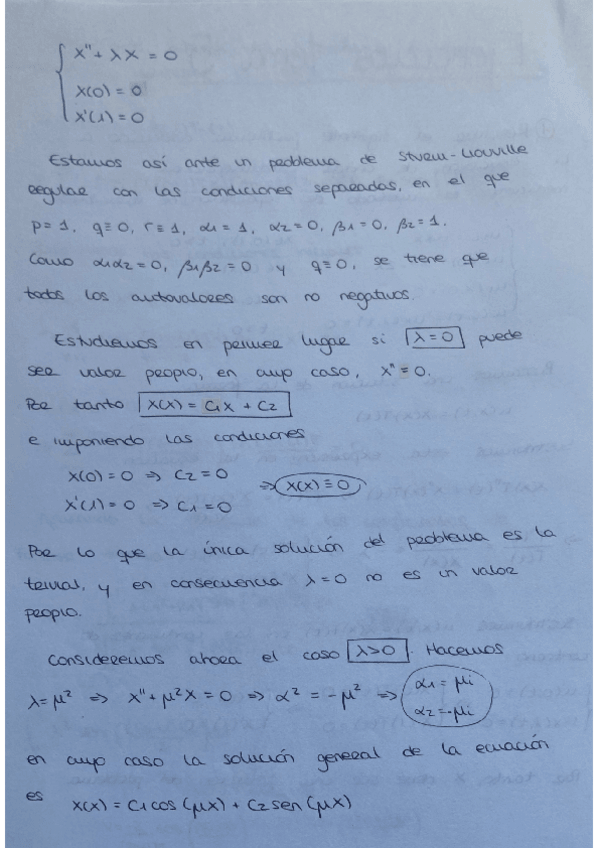 X'' + λX = 0
X(0) = 0
X'(1) = 0
Estamos así ante un problema de Sturm-Liouville
regular con las condiciones separadas, en el que
p≡1, q≡0, r≡1, α1=1, α2=0, β1=0, β2=1.
Como α1α2=0, β1β2=0 y q≡0, se tiene que
todos los autovalores son no negativos.
Estudiemos en primer lugar si λ=0 puede
ser valor propio, en cuyo caso, X''=0.
Por tanto X(x) = C1x + C2
e imponiendo las condiciones
X(0)=0 ⇒ C2=0
⇒ X(x)≡0
X'(1)=0 ⇒ C1=0
Por lo que la única solución del problema es la
trivial, y en consecuencia λ=0 no es un valor
propio.
Consideremos ahora el caso λ>0. Hacemos
λ=μ² ⇒ X''+μ²X=0 ⇒ α²=-μ² ⇒ α1=μi
α2=-μi
en cuyo caso la solución general de la ecuación
es X(x) = C1 cos(μx) + C2 sen(μx)